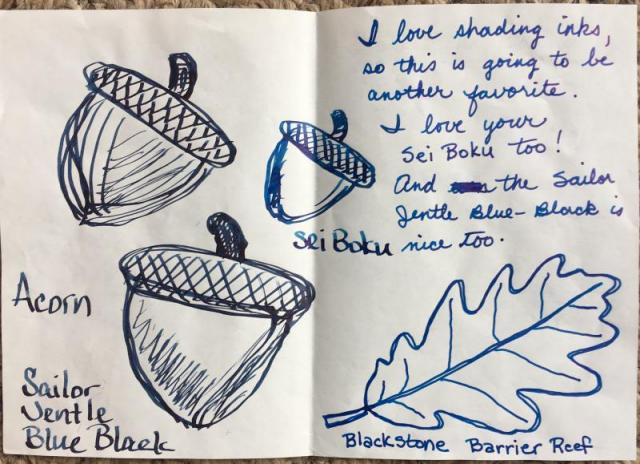 I love shading inks,
so this is going to be
another favorite.
I love your
Sei Boku too!
And the Sailor
Jentle Blue-Black is
nice too.
Sei Boku
Acorn
Sailor
Jentle
Blue Black
Blackstone Barrier Reef